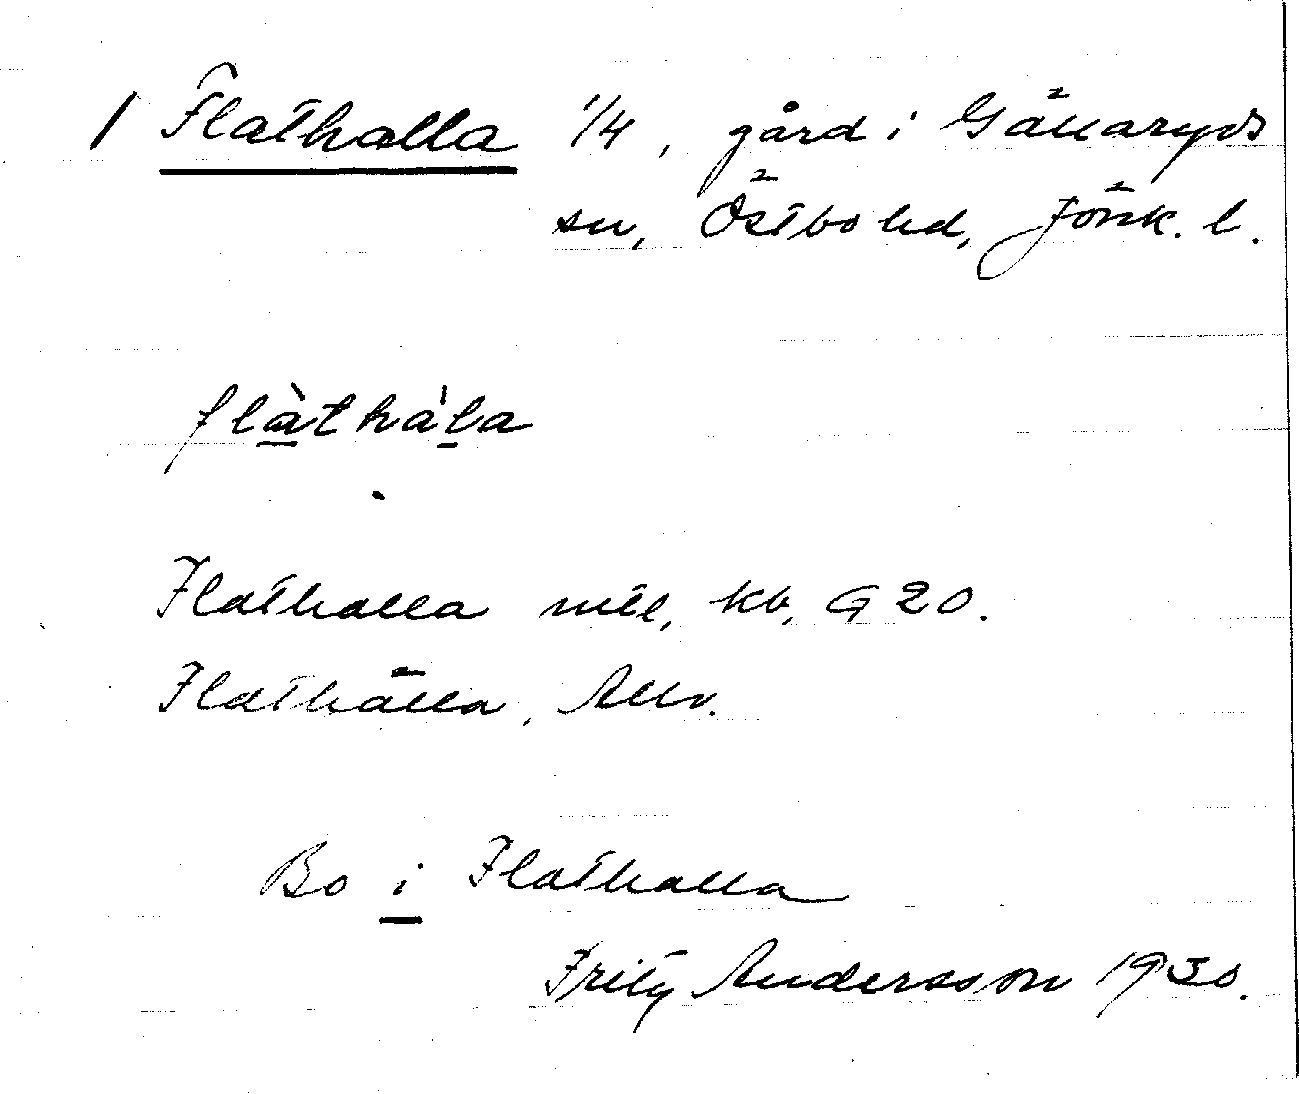 1 Flathalla 1/4, gård i Gällaryds
sn, Östbo hd, Jönk. l.
flàthàla
Flathalla mtl, kb, G 20.
Flathälla, Allm.
Bo i Flathalla
Fritz Andersson 1930.